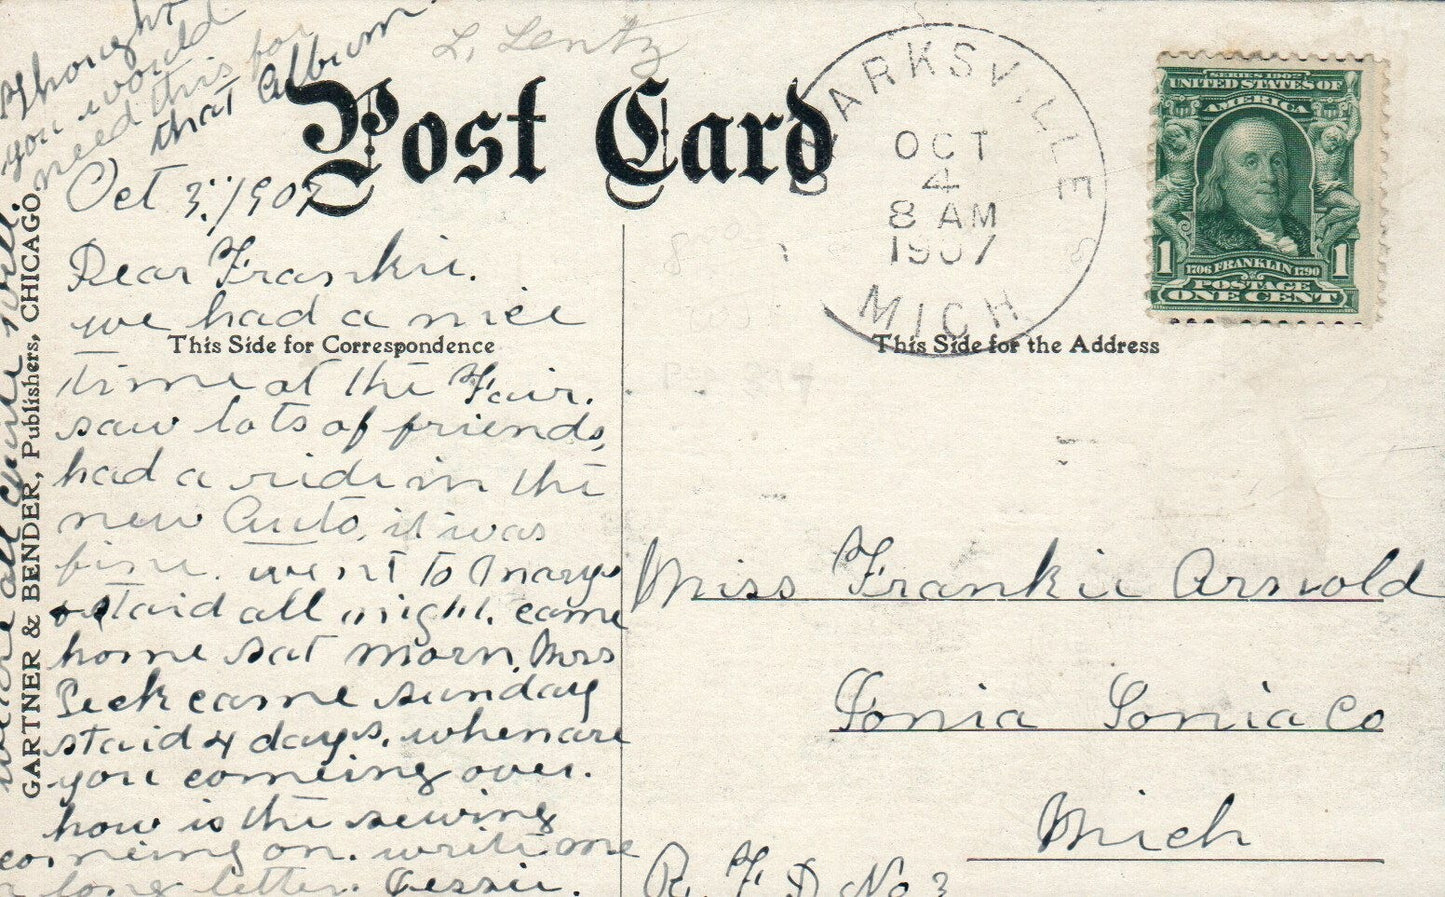 Thought
you would
need this for
that Album
L. Lentz
Post Card
CLARKSVILLE
OCT
4
8 AM
1907
MICH
SERIES 1902
UNITED STATES OF
AMERICA
1 1
1706 FRANKLIN 1790
POSTAGE
ONE CENT
This Side for Correspondence
This Side for the Address
GARTNER & BENDER, Publishers, CHICAGO.
Oct 3. 1907
Dear Frankie.
we had a nice
time at the Fair.
saw lots of friends,
had a ride in the
new Auto, it was
fine. went to Marys
staid all night. came
home Sat morn. Mrs
Peck came sunday
staid 4 days. when are
you comeing over.
how is the sewing
comeing on. write me
a long letter. Jessie.
were all quite well.
Miss Frankie Arnold
Ionia Ionia Co
Mich
R. F. D No 3